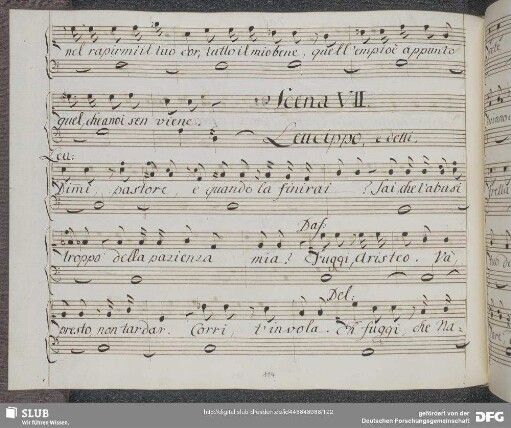 nel rapirmi il tuo cor, tutto il mio bene. quell' empio è appunto
Scena VII.
quel, che a noi sen viene.
Leucippo, e detti.
Leu:
Dimi, pastore, e quando la finirai? Sai che t'abusi
Daf:
troppo della pazienza mia? Fuggi Aristeo. Và,
Del:
presto non tardar. Corri, t'invola. Di fuggi, che Na=
194
SLUB
Wir führen Wissen.
gefördert von der
Deutschen Forschungsgemeinschaft
DFG